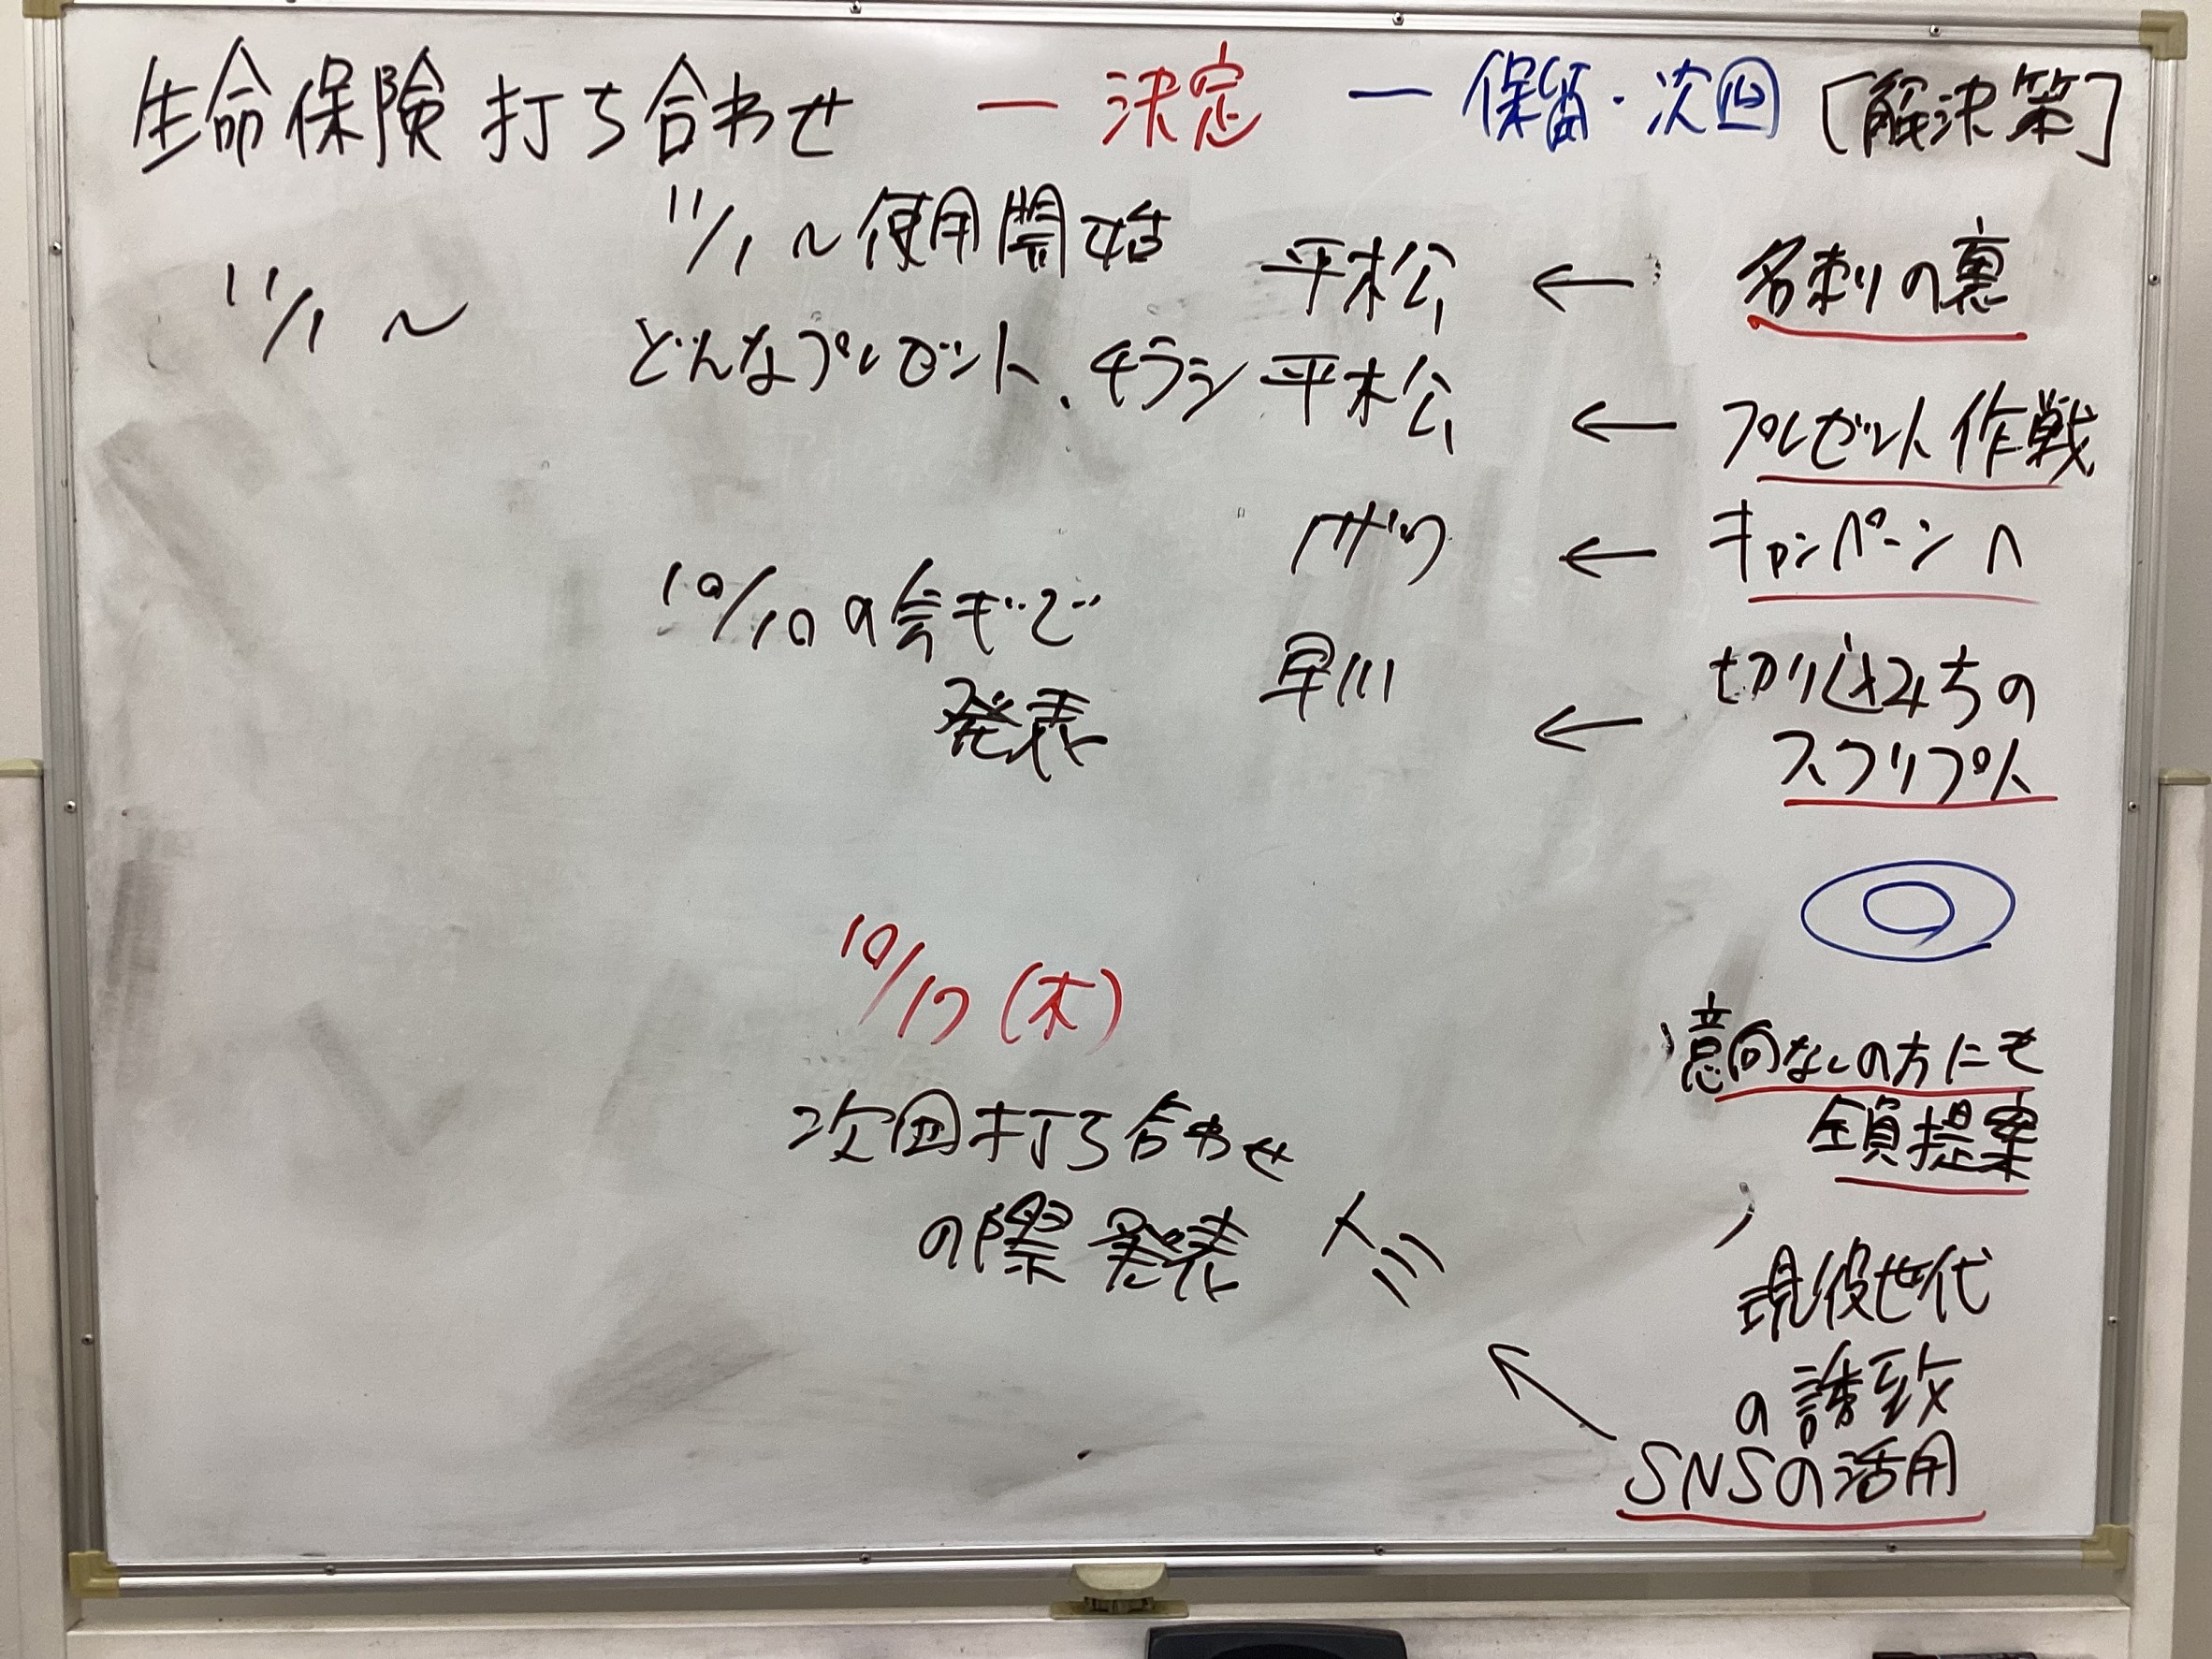 生命保険打ち合わせ ー決定 ー保留・次回 [解決策]
11/1～使用開始 平松 ← 名刺の裏
11/1～
どんなプレゼント、チラシ 平松 ← プレゼント作戦
← キャンペーンへ
10/10の会ギで 早川 ← 切り込みちの
発表 スクリプト
◎
10/17(木)
意向なしの方にも
次回打ち合わせ 全員提案
の際発表
現役世代
の誘致
SNSの活用